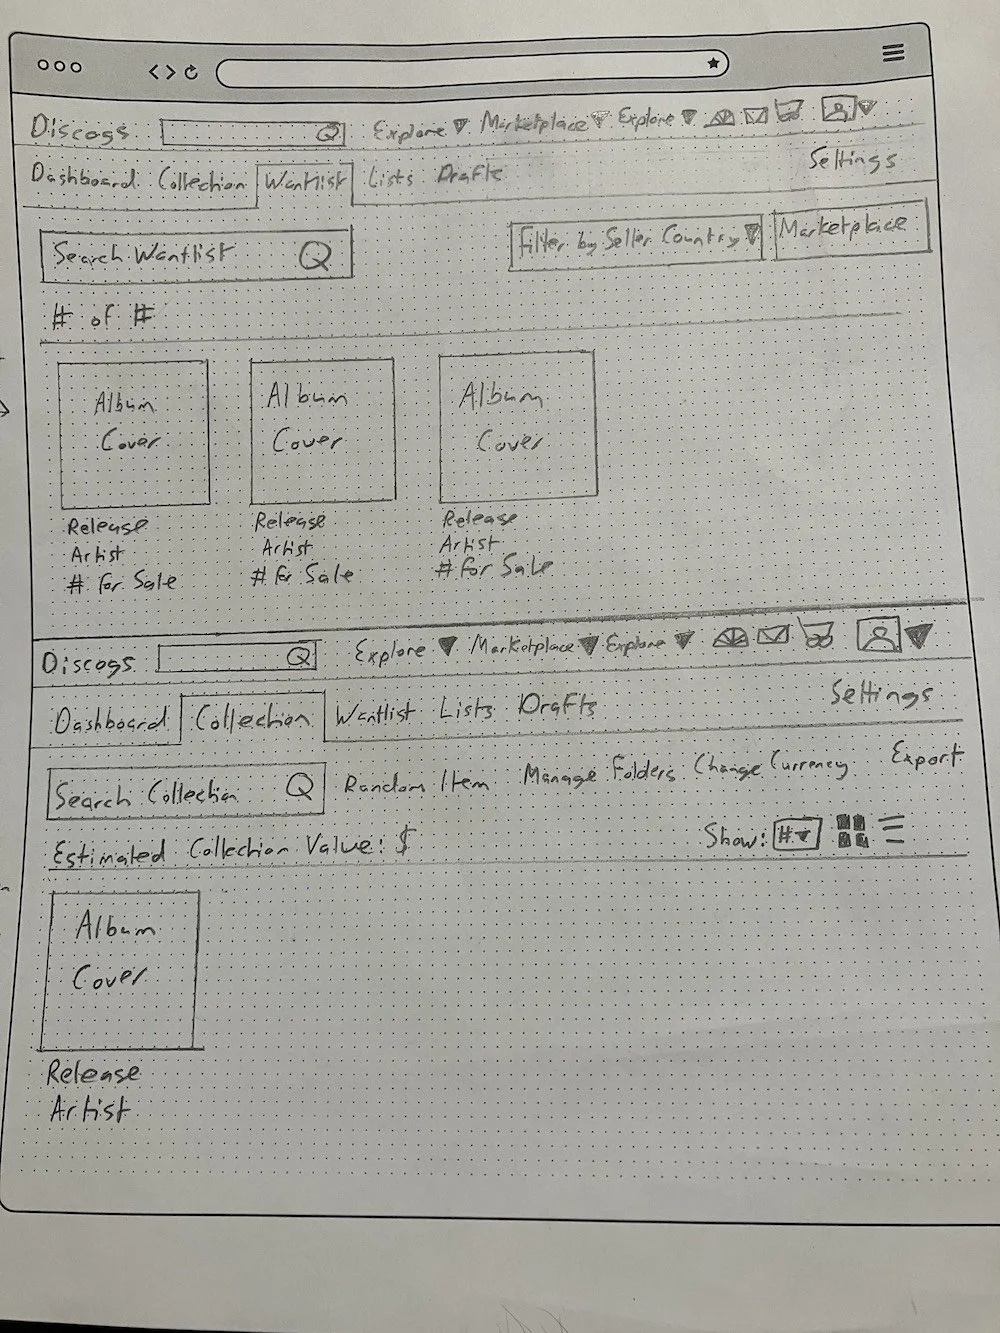 Discogs Explore Marketplace Explore
Dashboard Collection Wantlist Lists Drafts Settings
Search Wantlist Filter by Seller Country Marketplace
# of #
Album Album Album
Cover Cover Cover
Release Release Release
Artist Artist Artist
# for Sale # for Sale # for Sale
Discogs Explore Marketplace Explore
Dashboard Collection Wantlist Lists Drafts Settings
Search Collection Random Item Manage Folders Change Currency Export
Estimated Collection Value: $ Show: #
Album
Cover
Release
Artist